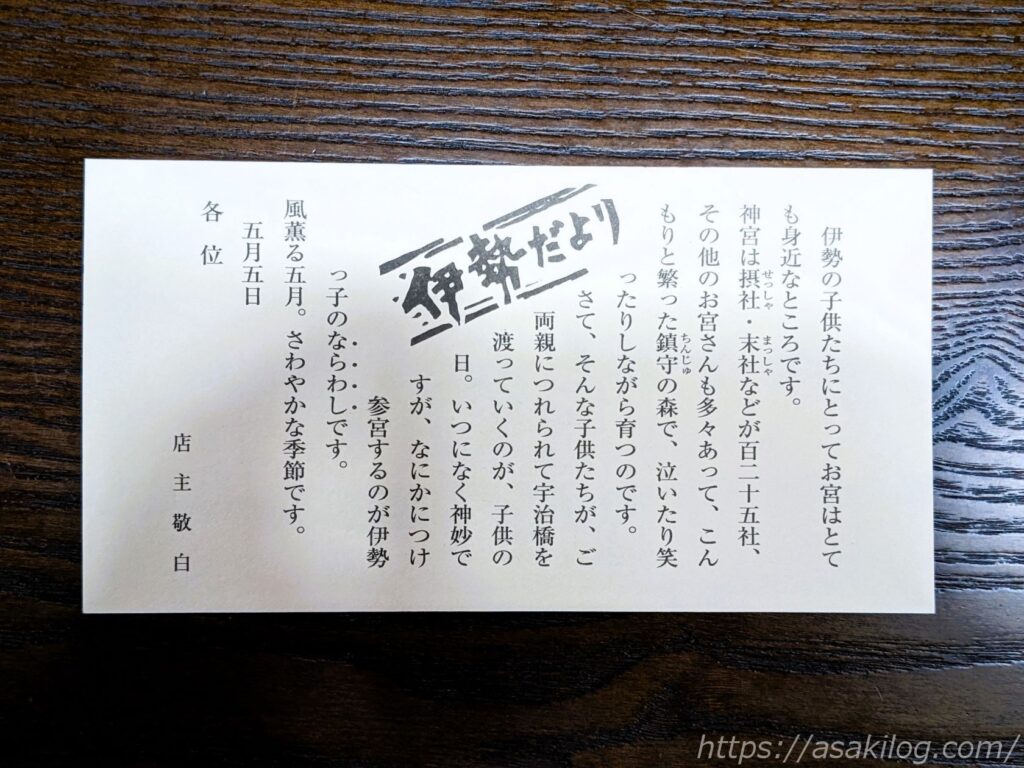 伊勢だより
伊勢の子供たちにとってお宮はとて
も身近なところです。
神宮は摂社・末社などが百二十五社、
その他のお宮さんも多々あって、こん
もりと繁った鎮守の森で、泣いたり笑
ったりしながら育つのです。
さて、そんな子供たちが、ご
両親につれられて宇治橋を
渡っていくのが、子供の
日。いつになく神妙で
すが、なにかにつけ
参宮するのが伊勢
っ子のならわしです。
風薫る五月。さわやかな季節です。
五月五日
店主敬白
各位
https://asakilog.com/